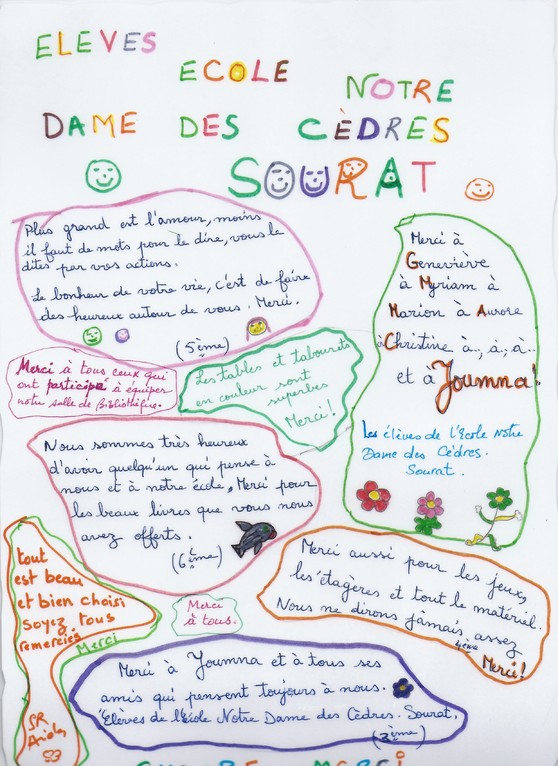 ELEVES
ECOLE NOTRE
DAME DES CÈDRES
SOURAT
Plus grand est l'amour, moins
il faut de mots pour le dire, vous le
dites par vos actions.
Le bonheur de votre vie, c'est de faire
des heureux autour de vous. Merci.
(5ème)
Merci à
Geneviève
à Myriam à
Marion à Aurore
à Christine à.., à.., à..
et à Joumna!
Les élèves de L'école Notre
Dame des Cèdres.
Sourat.
Merci à tous ceux qui
ont participé à équiper
notre salle de Bibliothèque.
Les tables et tabourets
en couleur sont
superbes
Merci!
Nous sommes très heureux
d'avoir quelqu'un qui pense à
nous et à notre école, Merci pour
les beaux livres que vous nous
avez offerts.
(6ème)
Merci aussi pour les jeux,
les étagères et tout le matériel.
Nous ne dirons jamais assez
4ème
Merci!
tout
est beau
et bien choisi
soyez tous
remerciés
Merci
SR
Merci
à tous.
Merci à Joumna et à tous ses
amis qui pensent toujours à nous.
Elèves de l'école Notre Dame des Cèdres. Sourat.
(3ème)
MERCI